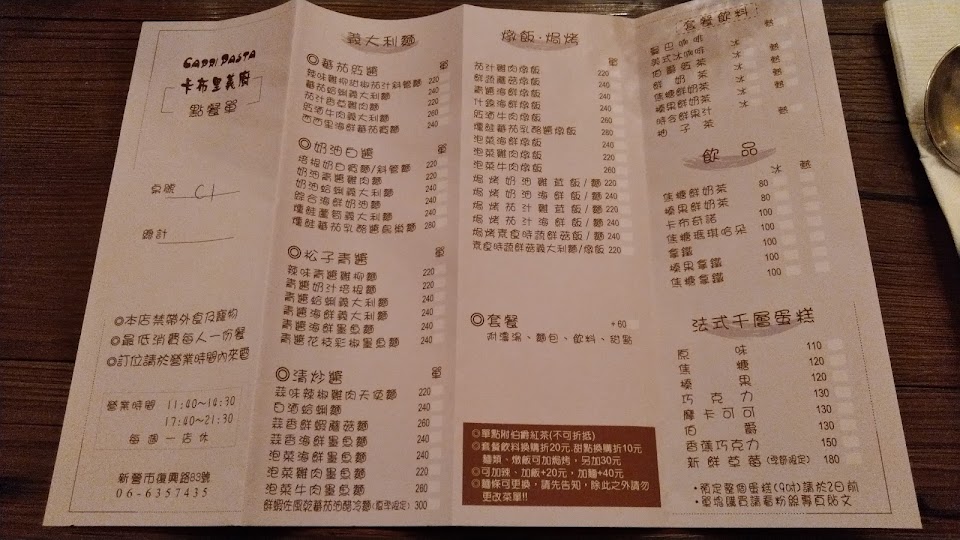 CAPPI PASTA
卡布里義廚
點餐單
桌號 C1
總計
◎本店禁帶外食及寵物
◎最低消費每人一份餐
◎訂位請於營業時間內來電
營業時間 11:40~14:30
17:40~21:30
每週一店休
新營市復興路83號
06-6357435
義大利麵
◎番茄紅醬 單
辣味雞柳甜椒茄汁斜管麵 220
番茄蛤蜊義大利麵 240
茄汁香草雞肉麵 220
紅酒牛肉義大利麵 260
西西里海鮮番茄寬麵 240
◎奶油白醬 單
培根奶白寬麵/斜管麵 220
奶油青醬雞肉麵 220
奶油蛤蜊義大利麵 240
綜合海鮮奶油麵 240
燻鮭蘆筍義大利麵 240
燻鮭番茄乳酪醬鳥巢麵 280
◎松子青醬 單
辣味青醬雞柳麵 220
青醬奶汁培根麵 220
青醬蛤蜊義大利麵 240
青醬海鮮義大利麵 240
青醬海鮮墨魚麵 240
青醬花枝彩椒墨魚麵 240
◎清炒醬 單
蒜味辣椒雞肉天使麵 220
白酒蛤蜊麵 240
蒜香鮮蝦蘑菇麵 260
蒜香海鮮墨魚麵 240
泡菜海鮮墨魚麵 240
泡菜雞肉墨魚麵 220
泡菜牛肉墨魚麵 260
鮮蝦佐風乾番茄油醋冷麵(夏季限定) 300
燉飯·焗烤
單
茄汁雞肉燉飯 220
鮮蔬蘑菇燉飯
青醬海鮮燉飯 240
什錦海鮮燉飯 240
紅酒牛肉燉飯
燻鮭番茄乳酪醬燉飯 280
泡菜海鮮燉飯 240
泡菜雞肉燉飯 220
泡菜牛肉燉飯 260
焗烤奶油雞菇飯/麵 220
焗烤奶油海鮮飯/麵 240
焗烤茄汁雞菇飯/麵 220
焗烤茄汁海鮮飯/麵 240
焗烤素食時蔬鮮菇飯/麵 240
素食時蔬鮮菇義大利麵/燉飯 220
◎套餐 +60
附濃湯、麵包、飲料、甜點
◎單點附伯爵紅茶(不可折抵)
◎套餐飲料換購折20元.甜點換購折10元
麵類、燉飯可加焗烤，另加30元
◎可加辣、加飯+20元，加麵+40元
◎麵條可更換，請先告知，除此之外請勿
更改菜單!!
套餐飲料
曼巴咖啡 熱
美式冰咖啡 冰
伯爵紅茶 冰 熱
鮮奶茶 冰 熱
焦糖鮮奶茶 冰 熱
榛果鮮奶茶 冰 熱
時令鮮果汁 冰
柚子茶 冰 熱
飲品
冰 熱
焦糖鮮奶茶 80
榛果鮮奶茶 80
卡布奇諾 100
焦糖瑪琪哈朵 100
拿鐵 100
榛果拿鐵 100
焦糖拿鐵 100
法式千層蛋糕
原味 110
焦糖 120
榛果 120
巧克力 130
摩卡可可 130
伯爵 130
香蕉巧克力 150
新鮮草莓(冬季限定) 180
•預定整個蛋糕(9吋)請於2日前
•單塊購買請看粉絲專頁貼文